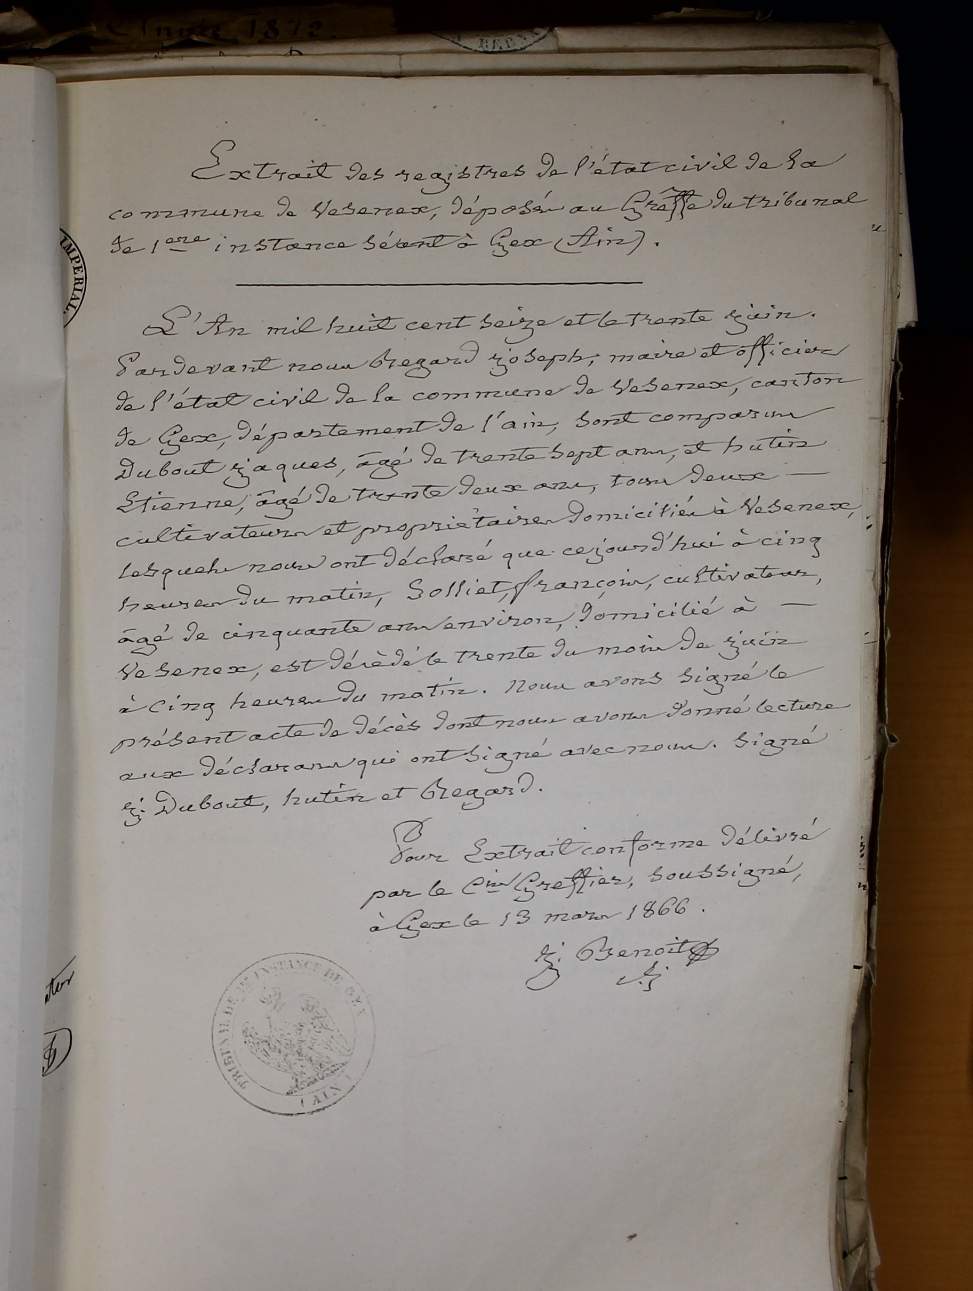 Année 1812.
BERN
IMPERIAL.
Extrait des registres de l'état civil de la
commune de Vesenex, déposés au Greffe du tribunal
de 1ere instance séant à Gex (Ain).
L'An mil huit cent seize et le trente juin.
Pardevant nous Regard joseph, maire et officier
de l'état civil de la commune de Vesenex, canton
de Gex, département de l'ain, sont comparus
Dubout jaques, âgé de trente sept ans, et hutin
Etienne, âgé de trente deux ans, tous deux —
cultivateurs et propriétaires domiciliés à Vesenex,
lesquels nous ont déclaré que cejourd'hui à cinq
heures du matin, Solliet, françois, cultivateur,
âgé de cinquante ans environ, domicilié à —
Vesenex, est décèdé le trente du mois de juin
à cinq heures du matin. Nous avons signé le
présent acte de décès dont nous avons donné lecture
aux déclarans qui ont signé avec nous. Signé
j. Dubout, hutin et Regard.
Pour Extrait conforme délivré
par le Cis Greffier, soussigné,
à Gex le 13 mars 1866.
j. Benoit
TRIBUNAL DE 1re INSTANCE DE GEX
(AIN)